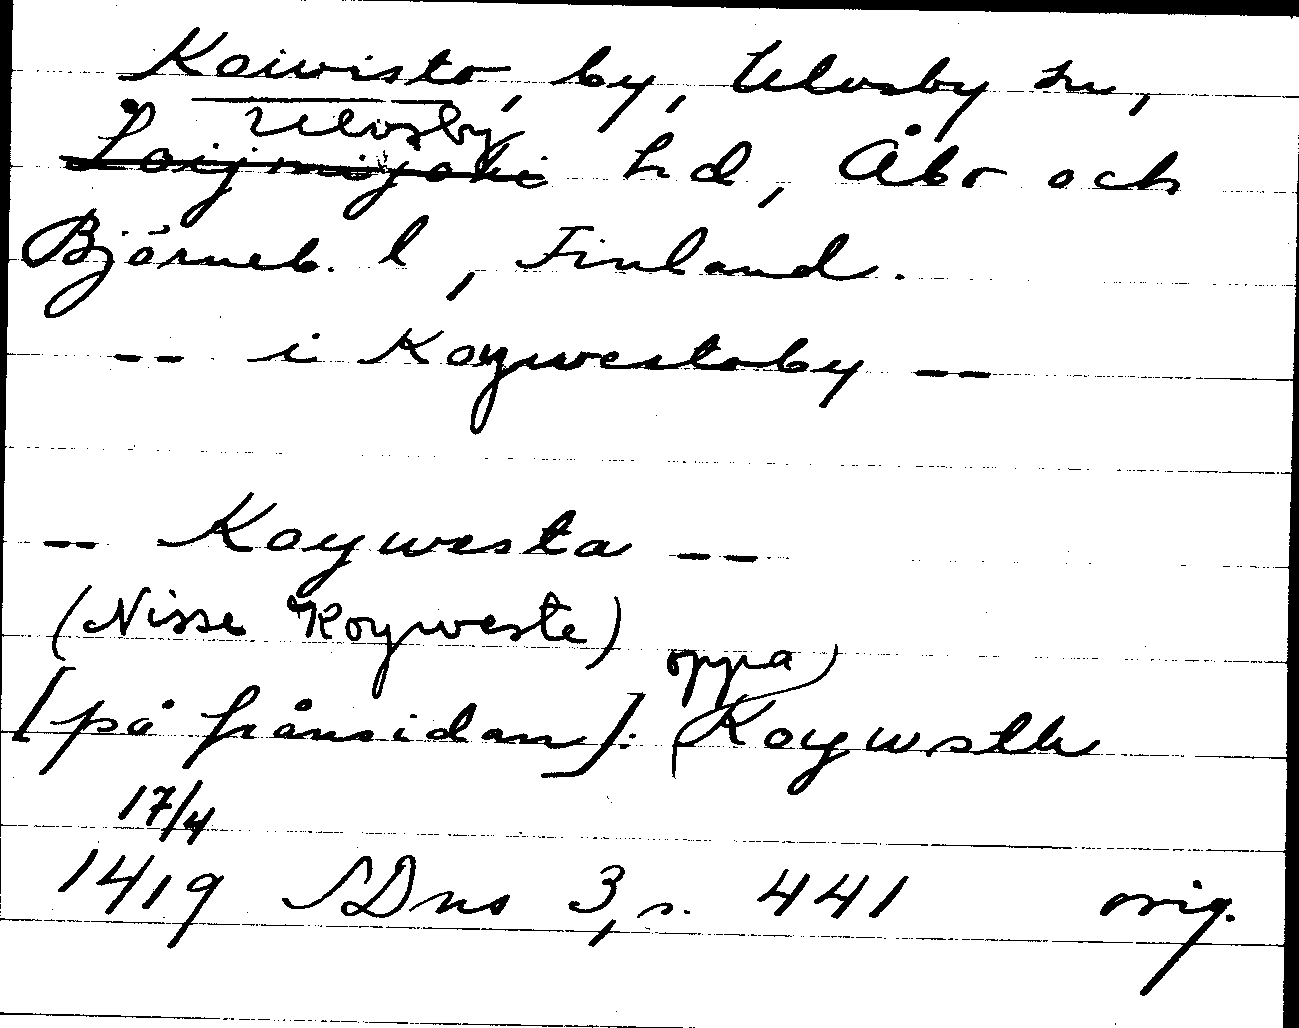 Koivisto, by, Ulvsby sn,
Ulvsby
Loijmijoki hd, Åbo och
Björneb. l, Finland.
-- i Koywestoby --
-- Koywesta --
(Nisse Koyweste)
oppa
[på frånsidan]: Koywsth
17/4
1419 SDns 3, s. 441 orig.